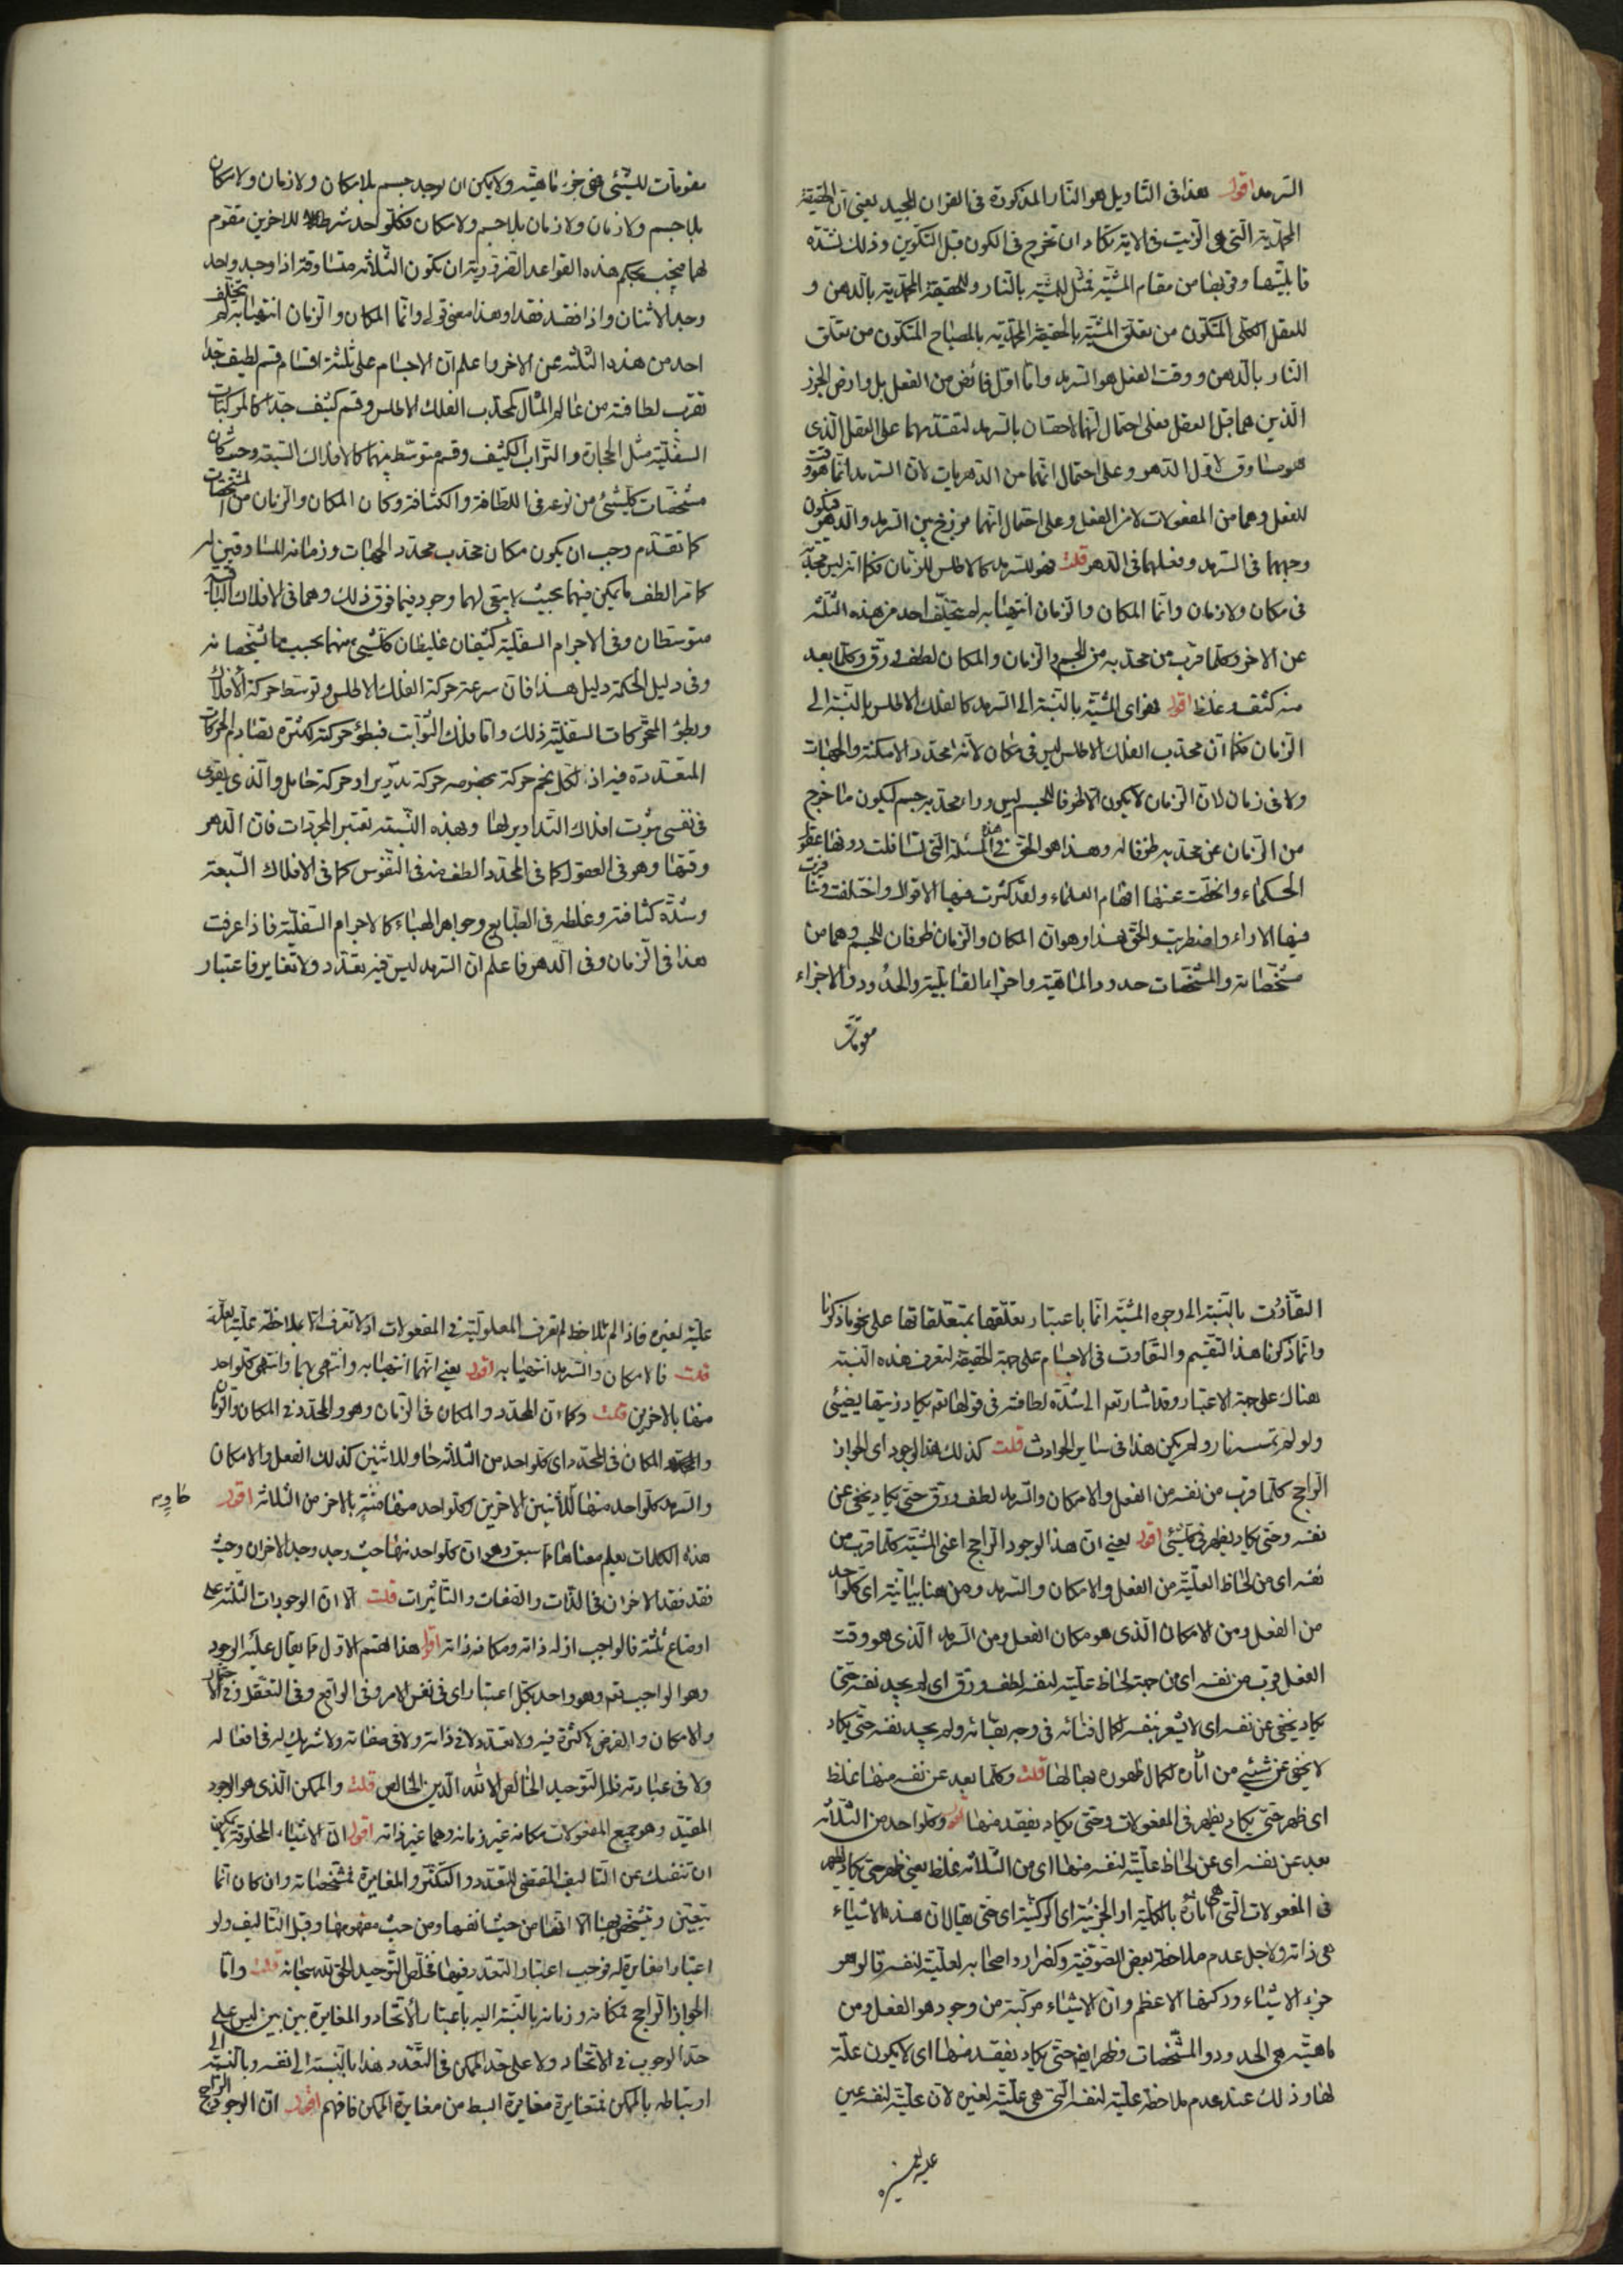 السرمد اقول هذا في التاويل هو النار المذكورة في القران المجيد يعني ان الحقيقة
المحمدية التي هي الزيت في الاية تكاد ان تخرج في الكون قبل التكوين وذلك لشدة
قابليتها وقربها من مقام المشية فمثل للمشية بالنار وللحقيقة المحمدية بالدهن و
للعقل الكلي المتكون من تعلق المشية بالحقيقة المحمدية بالمصباح المتكون من تعلق
النار بالدهن ووقت الفعل هو السرمد واما اول فائض من الفعل بل وارض الجرز
الذين هما قبل العقل فعلى احتمال انهما لاحقان بالسرمد لتقدمهما على العقل الذي
هو مساوق لاول الدهر وعلى احتمال انهما من الدهريات لان السرمد انما هو وقت
للفعل وهما من المفعولات لا من الفعل وعلى احتمال انهما برزخ بين السرمد والدهر فيكون
وجههما في السرمد وفعلهما في الدهر قلت فهو للسرمد كالاطلس للزمان فكما انه ليس محدبه
في مكان ولا زمان وانما المكان والزمان انتهيا به لم يتخلف احد من هذه الثلثة
عن الاخر وكلما قرب من محدبه من الجسم والزمان والمكان لطف ورق وكلما بعد
منه كثف وغلظ اقول فهو اي المشية بالنسبة الى السرمد كالفلك الاطلس بالنسبة الى
الزمان فكما ان محدب الفلك الاطلس ليس في مكان لانه محدد الامكنة والجهات
ولا في زمان لان الزمان لا يكون الا ظرفا للجسم وليس وراء محدبه جسم ليكون ما خرج
من الزمان عن محدبه ظرفا له وهذا هو الحق في هذه المسئلة التي تسافلت دونها عقول
الحكماء وانحطت عنها افهام العلماء ولقد كثرت فيها الاقوال واختلفت وتشاجرت
فيها الاراء واضطربت والحق هذا وهو ان المكان والزمان ظرفان للجسم وهما من
مشخصاته والمشخصات حدود الماهية واجزاء القابلية والحدود والاجزاء
مقومات
مقومات للشيء فهي جزء ماهيته ولا يمكن ان يوجد جسم بلا مكان ولا زمان ولا مكان
بلا جسم ولا زمان ولا زمان بلا جسم ولا مكان فكل واحد شرط للاخرين مقوم
لهما فيجب بحكم هذه القواعد الضرورية ان تكون الثلثة متساوقة اذا وجد واحد
وجد الاثنان واذا فقد فقدا وهذا معنى قولي وانما المكان والزمان انتهيا به لم يتخلف
احد من هذه الثلثة عن الاخر واعلم ان الاجسام على ثلثة اقسام قسم لطيف جدا
تقرب لطافته من عالم المثال كمحدب الفلك الاطلس وقسم كثيف جدا كالمركبات
السفلية مثل الحجارة والتراب الكثيف وقسم متوسط بينهما كالافلاك السبعة وحيث كان
مشخصات كل شيء من نوعه في اللطافة والكثافة وكان المكان والزمان من المشخصات
كما تقدم وجب ان يكون مكان محدب محدد الجهات وزمانه المساوقين له
كانا الطف ما يمكن فيهما بحيث لا يبقى لهما وجود فيما فوق ذلك وهما في الافلاك الباقية
متوسطان وفي الاجرام السفلية كثيفان غليظان كل شيء منهما بحسب ما يشخصانه
وفي دليل الحكمة دليل هذا فان سرعة حركة الفلك الاطلس وتوسط حركة الافلاك
وبطؤ المتحركات السفلية ذلك واما فلك الثوابت فبطؤ حركته لكثرة تصادم الحركات
المتعددة فيه اذ لكل نجم حركة بخصوصه حركة تدوير او حركة حامل والذي يقوى
في نفسي ثبوت افلاك التداوير لها وبهذه النسبة تعتبر المجردات فان الدهر
وقتها وهو في العقول كما في المحدد الطف منه في النفوس كما في الافلاك السبعة
وشدة كثافته وغلظه في الطبايع وجواهر الهباء كالاجرام السفلية فاذا عرفت
هذا في الزمان وفي الدهر فاعلم ان السرمد ليس فيه تعدد ولا تغاير فاعتبار
التفاوت بالنسبة الى وجوه المشية انما باعتبار تعلقها بمتعلقاتها على نحو ما ذكرنا
وانما ذكرنا هذا التقسيم والتفاوت في الاجسام على جهة الحقيقة لتعرف هذه النسبة
هناك على جهة الاعتبار وقد اشار تعالى الى شدة لطافته في قوله تعالى يكاد زيتها يضيئ
ولو لم تمسسه نار ولم يكن هذا في ساير الحوادث قلت كذلك هذا الوجود اي الجواز
الراجح كلما قرب من نفسه من الفعل والامكان والسرمد لطف ورق حتى يكاد يخفى عن
نفسه وحتى يكاد يظهر في كل شيئ اقول يعني ان هذا الوجود الراجح اعني المشية كلما قرب من
نفسه اي من لحاظ العلية من الفعل والامكان والسرمد ومن هنا بيانية اي كل واحد
من الفعل ومن الامكان الذي هو مكان الفعل ومن السرمد الذي هو وقت
الفعل قرب من نفسه اي من جهة لحاظ علية لنفسه لطف ورق اي لم يجد نفسه حتى
يكاد يخفى عن نفسه اي لا يشعر بنفسه لكمال فنائه في وجه بقائه ولم يجد نفسه حتى يكاد
لا يخفى عن شيئ من اثاره لكمال ظهوره بها لها قلت وكلما بعد عن نفسه منها غلظ
اي ظهر حتى يكاد يظهر في المفعولات وحتى يكاد يفقد منها اقول وكل واحد من الثلاثة
بعد عن نفسه اي عن لحاظ علية لنفسه منها اي من الثلاثة غلظ يعني ظهر حتى يكاد يظهر
في المفعولات التي هي اثاره بالكلية او الجزئية اي الركنية اي حتى يقال ان هذه الاشياء
هي ذاته ولاجل عدم ملاحظة بعض الصوفية وكضرار واصحابه لعلية لنفسه قالوا هو
جزء الاشياء وركنها الاعظم وان الاشياء مركبة من وجود هو الفعل ومن
ماهية هي الحدود والمشخصات وظهر ايضا حتى يكاد يفقد منها اي لا يكون علة
لها وذلك عند عدم ملاحظة علية لنفسه التي هي علية لغيره لان علية لنفسه عين
علية لغيره
علية لغيره فاذا لم تلاحظ لم تعرف المعلولية في المفعولات اذ لا تعرف الا بملاحظة علية العلة
قلت فالامكان والسرمد انتهيا به اقول يعني انهما انتهيا به وانتهى بهما وانتهى كل واحد
منها بالاخرين قلت وكما ان المحدد والمكان في الزمان وهو والمحدد في المكان والزمان
والمكان في المحدد اي كل واحد من الثلاثة حاو للاثنين كذلك الفعل والامكان
والسرمد كل واحد منها للاثنين الاخرين وكل واحد منها منته بالاخر من الثلاثة اقول
حاويه
هذه الكلمات يعلم معناها مما سبق وهو ان كل واحد منها حيث وجد وجد الاخران وحيث
فقد فقد الاخران في الذات والصفات والتاثيرات قلت الا ان الوجودات الثلثة على
اوضاع ثلثة فالواجب ازله ذاته ومكانه ذاته اقول هذا القسم الاول مما يقال عليه الوجود
وهو الواجب تعالى وهو واحد بكل اعتبار اي في نفس الامر وفي الواقع وفي التعقل وفي الاحتمال
والامكان والفرض لا كثرة فيه ولا تعدد لا في ذاته ولا في صفاته ولا شريك له في افعاله
ولا في عبادته فله التوحيد الخالص الا لله الدين الخالص قلت والممكن الذي هو الوجود
المقيد وهو جميع المفعولات مكانه غير زمانه وهما غير ذاته اقول ان الاشياء المخلوقة لا يمكن
ان تنفك عن التاليف المقتضي للتعدد والتكثر والمغايرة لمشخصاته وان كان انما
يتعين ويتشخص بها الا انها من حيث انفسها ومن حيث مفهومها وقبل التاليف ولو
اعتبارا مغايرة له فوجب اعتبار التعدد فيها فخلص التوحيد الحق لله سبحانه قلت واما
الجواز الراجح فمكانه وزمانه بالنسبة اليه باعتبار الاتحاد والمغايرة بين بين ليس على
حد الوجوب في الاتحاد ولا على حد الممكن في التعدد هذا بالنسبة الى نفسه وبالنسبة الى
ارتباطه بالممكن فمتغايرة مغايرة ابسط من مغايرة الممكن فافهم اقول ان الوجود الراجح